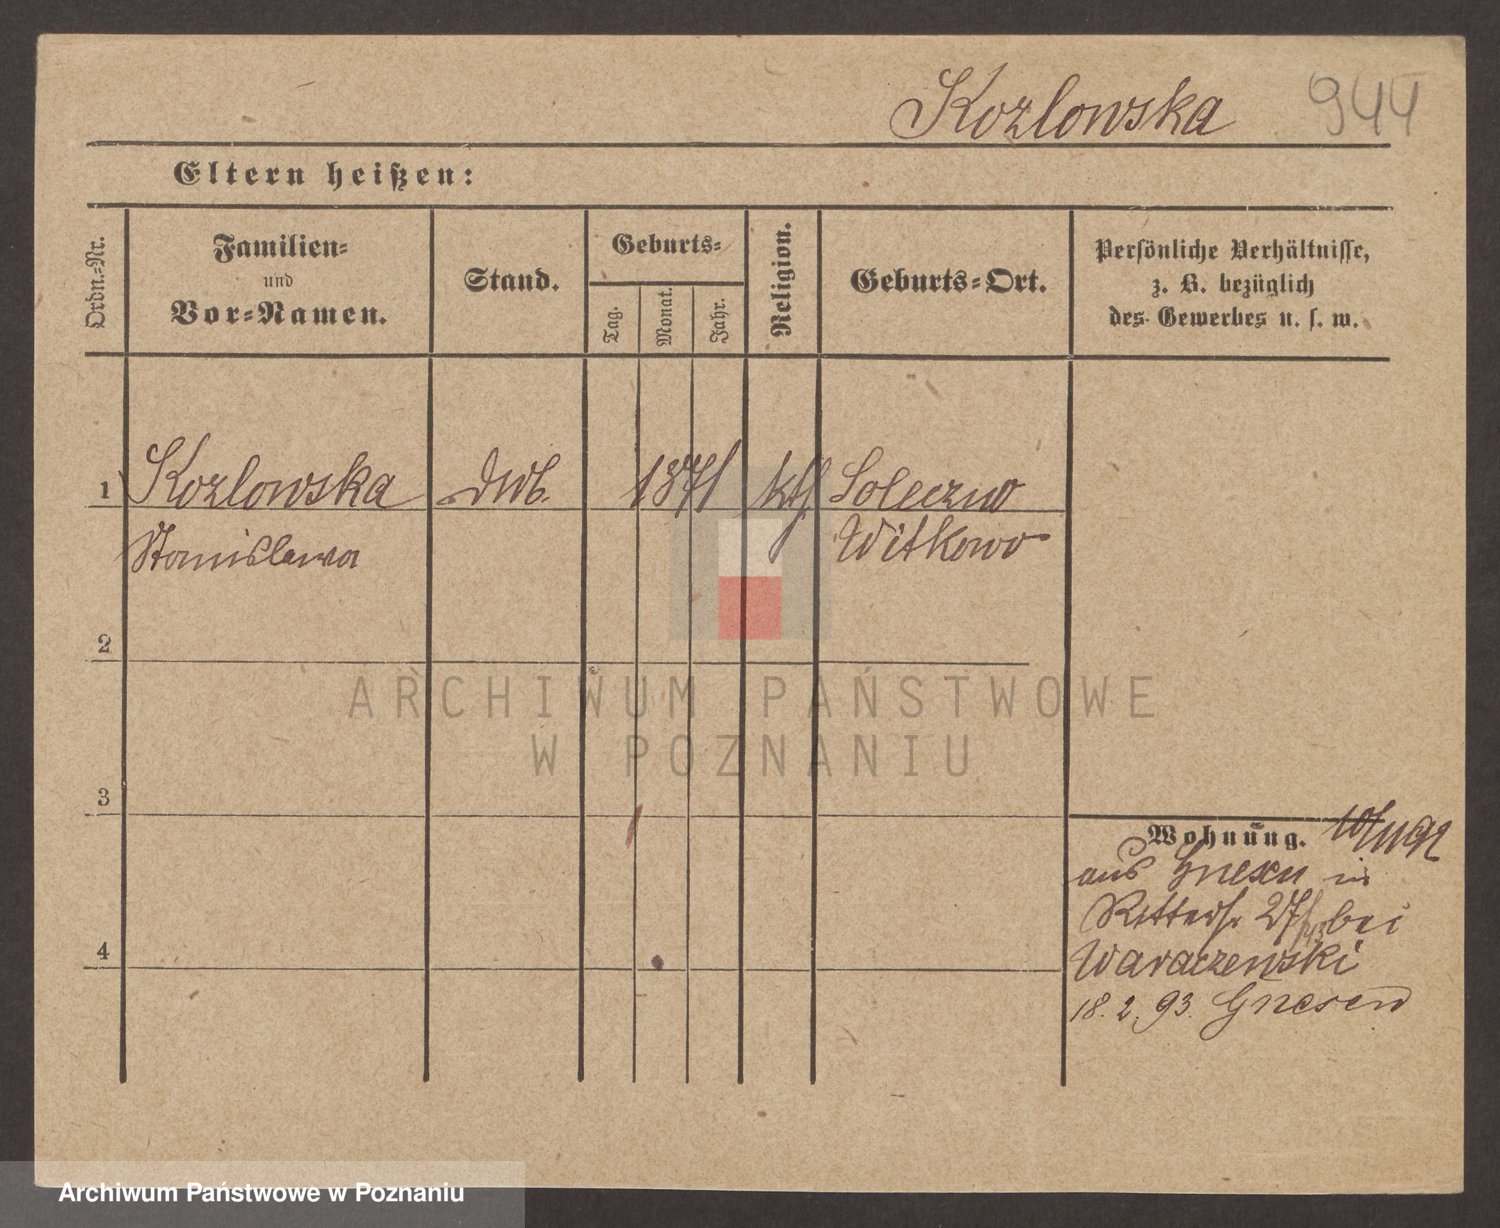 Kozlowska 944
Eltern heißen:
Ordn.-Nr.
Familien-
und
Vor-Namen.
Stand.
Geburts-
Tag.
Monat.
Jahr.
Religion.
Geburts-Ort.
Persönliche Verhältnisse,
z. B. bezüglich
des Gewerbes u. s. w.
1 Kozlowska 1871 kth Soleczno
Stanislawa Witkowo
2
ARCHIWUM PAŃSTWOWE
W POZNANIU
3
Wohnung. 10/11 92
aus Gnesen in
Ritterstr 27 bei
Waraczewski
4
18. 2. 93. Gnesen
Archiwum Państwowe w Poznaniu